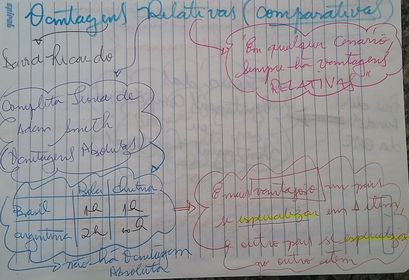 Vantagens Relativas (comparativas)
David Ricardo
"Em qualquer cenário
sempre há vantagens
"RELATIVAS"
Completa Teoria de
Adam Smith
(Vantagens Absolutas)
1h 1h
Brasil
Argentina 2h
não há Vantagem
Absoluta
É mais vantajoso um país
se especializar em 1 item
e outro país se especializar
no outro item